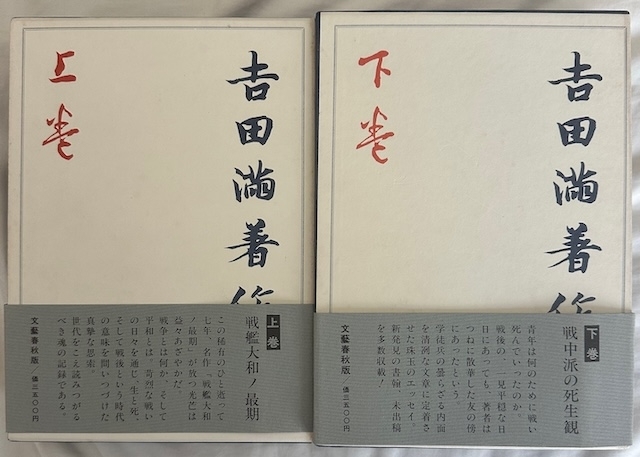 吉田滿著作
上巻
上巻
戦艦大和ノ最期
この稀有のひと逝って
七年、名作「戦艦大和
ノ最期」が放つ光芒は
益々あざやかだ。
戦争とは何か、そして
平和とは 苛烈な戦い
の日々を通じ、生と死、
そして戦後という時代
の意味を問いつづけた
真摯な思索。
世代をこえ読みつがる
べき魂の記録である。
文藝春秋版 價三五〇〇円
吉田滿著作
下巻
下巻
戦中派の死生観
青年は何のために戦い
死んでいったのか。
戦後の一見平穏な日
日にあっても、著者は
つねに散華した友の傍
にあったという。
学徒兵の曇らざる内面
を清冽な文章に定着さ
せた珠玉のエッセイ
新発見の書翰、未出稿
を多数収載!
文藝春秋版 價三五〇〇円